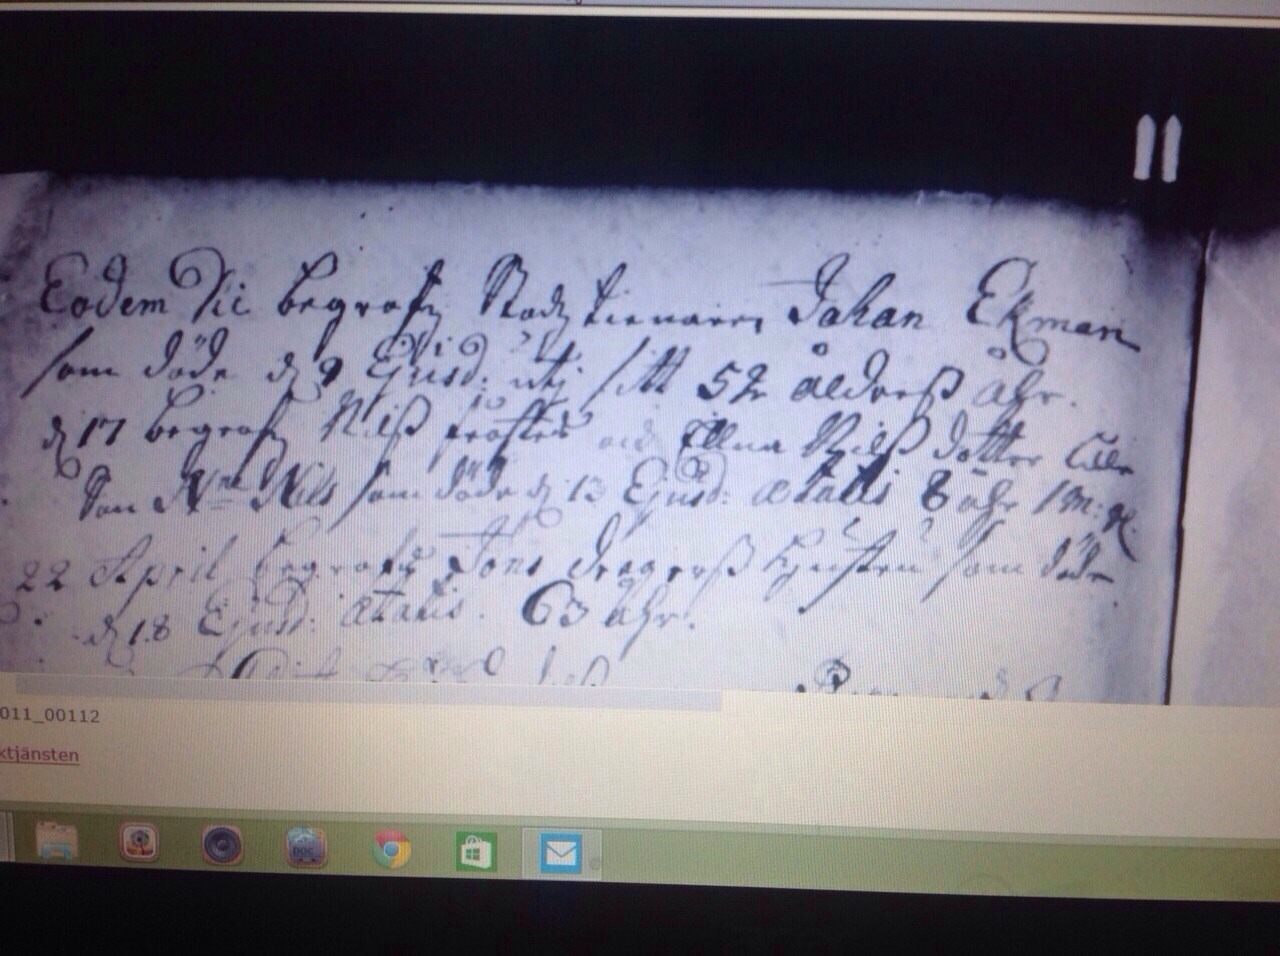 Eodem Die begrofz Stadz tienaren Johan Ekman
som döde d 9 Ejusd: uti sitt 52 åldersß åhr.
d 17 begrofz Nilß och Ellna Nilß dotter
Son Nils som döde d 13 Ejusd: ætatis 8 åhr 1 m:
22 April begrofz Jöns hustru som döde
d 18 Ejusd: ætatis. 63 åhr.
011_00112
ktjänsten
DOC